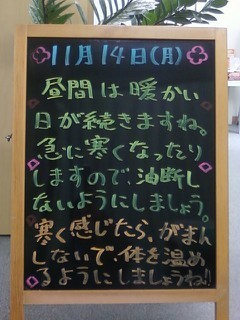 11月14日(月)
昼間は暖かい
日が続きますね。
急に寒くなったり
しますので、油断し
ないようにしましょう。
寒く感じたら、がまん
しないで、体を温め
るようにしましょうね!!